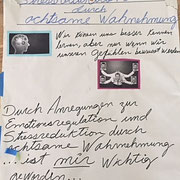 Stressreduktion
durch
achtsame Wahrnehmung
Wir können uns besser kennen
lernen, aber nur wenn wir
unseren Gefühlen bewusst werden
Durch Anregungen zur
Emotionsregulation und
Stressreduktion durch
achtsame Wahrnehmung
...ist mir wichtig
geworden...